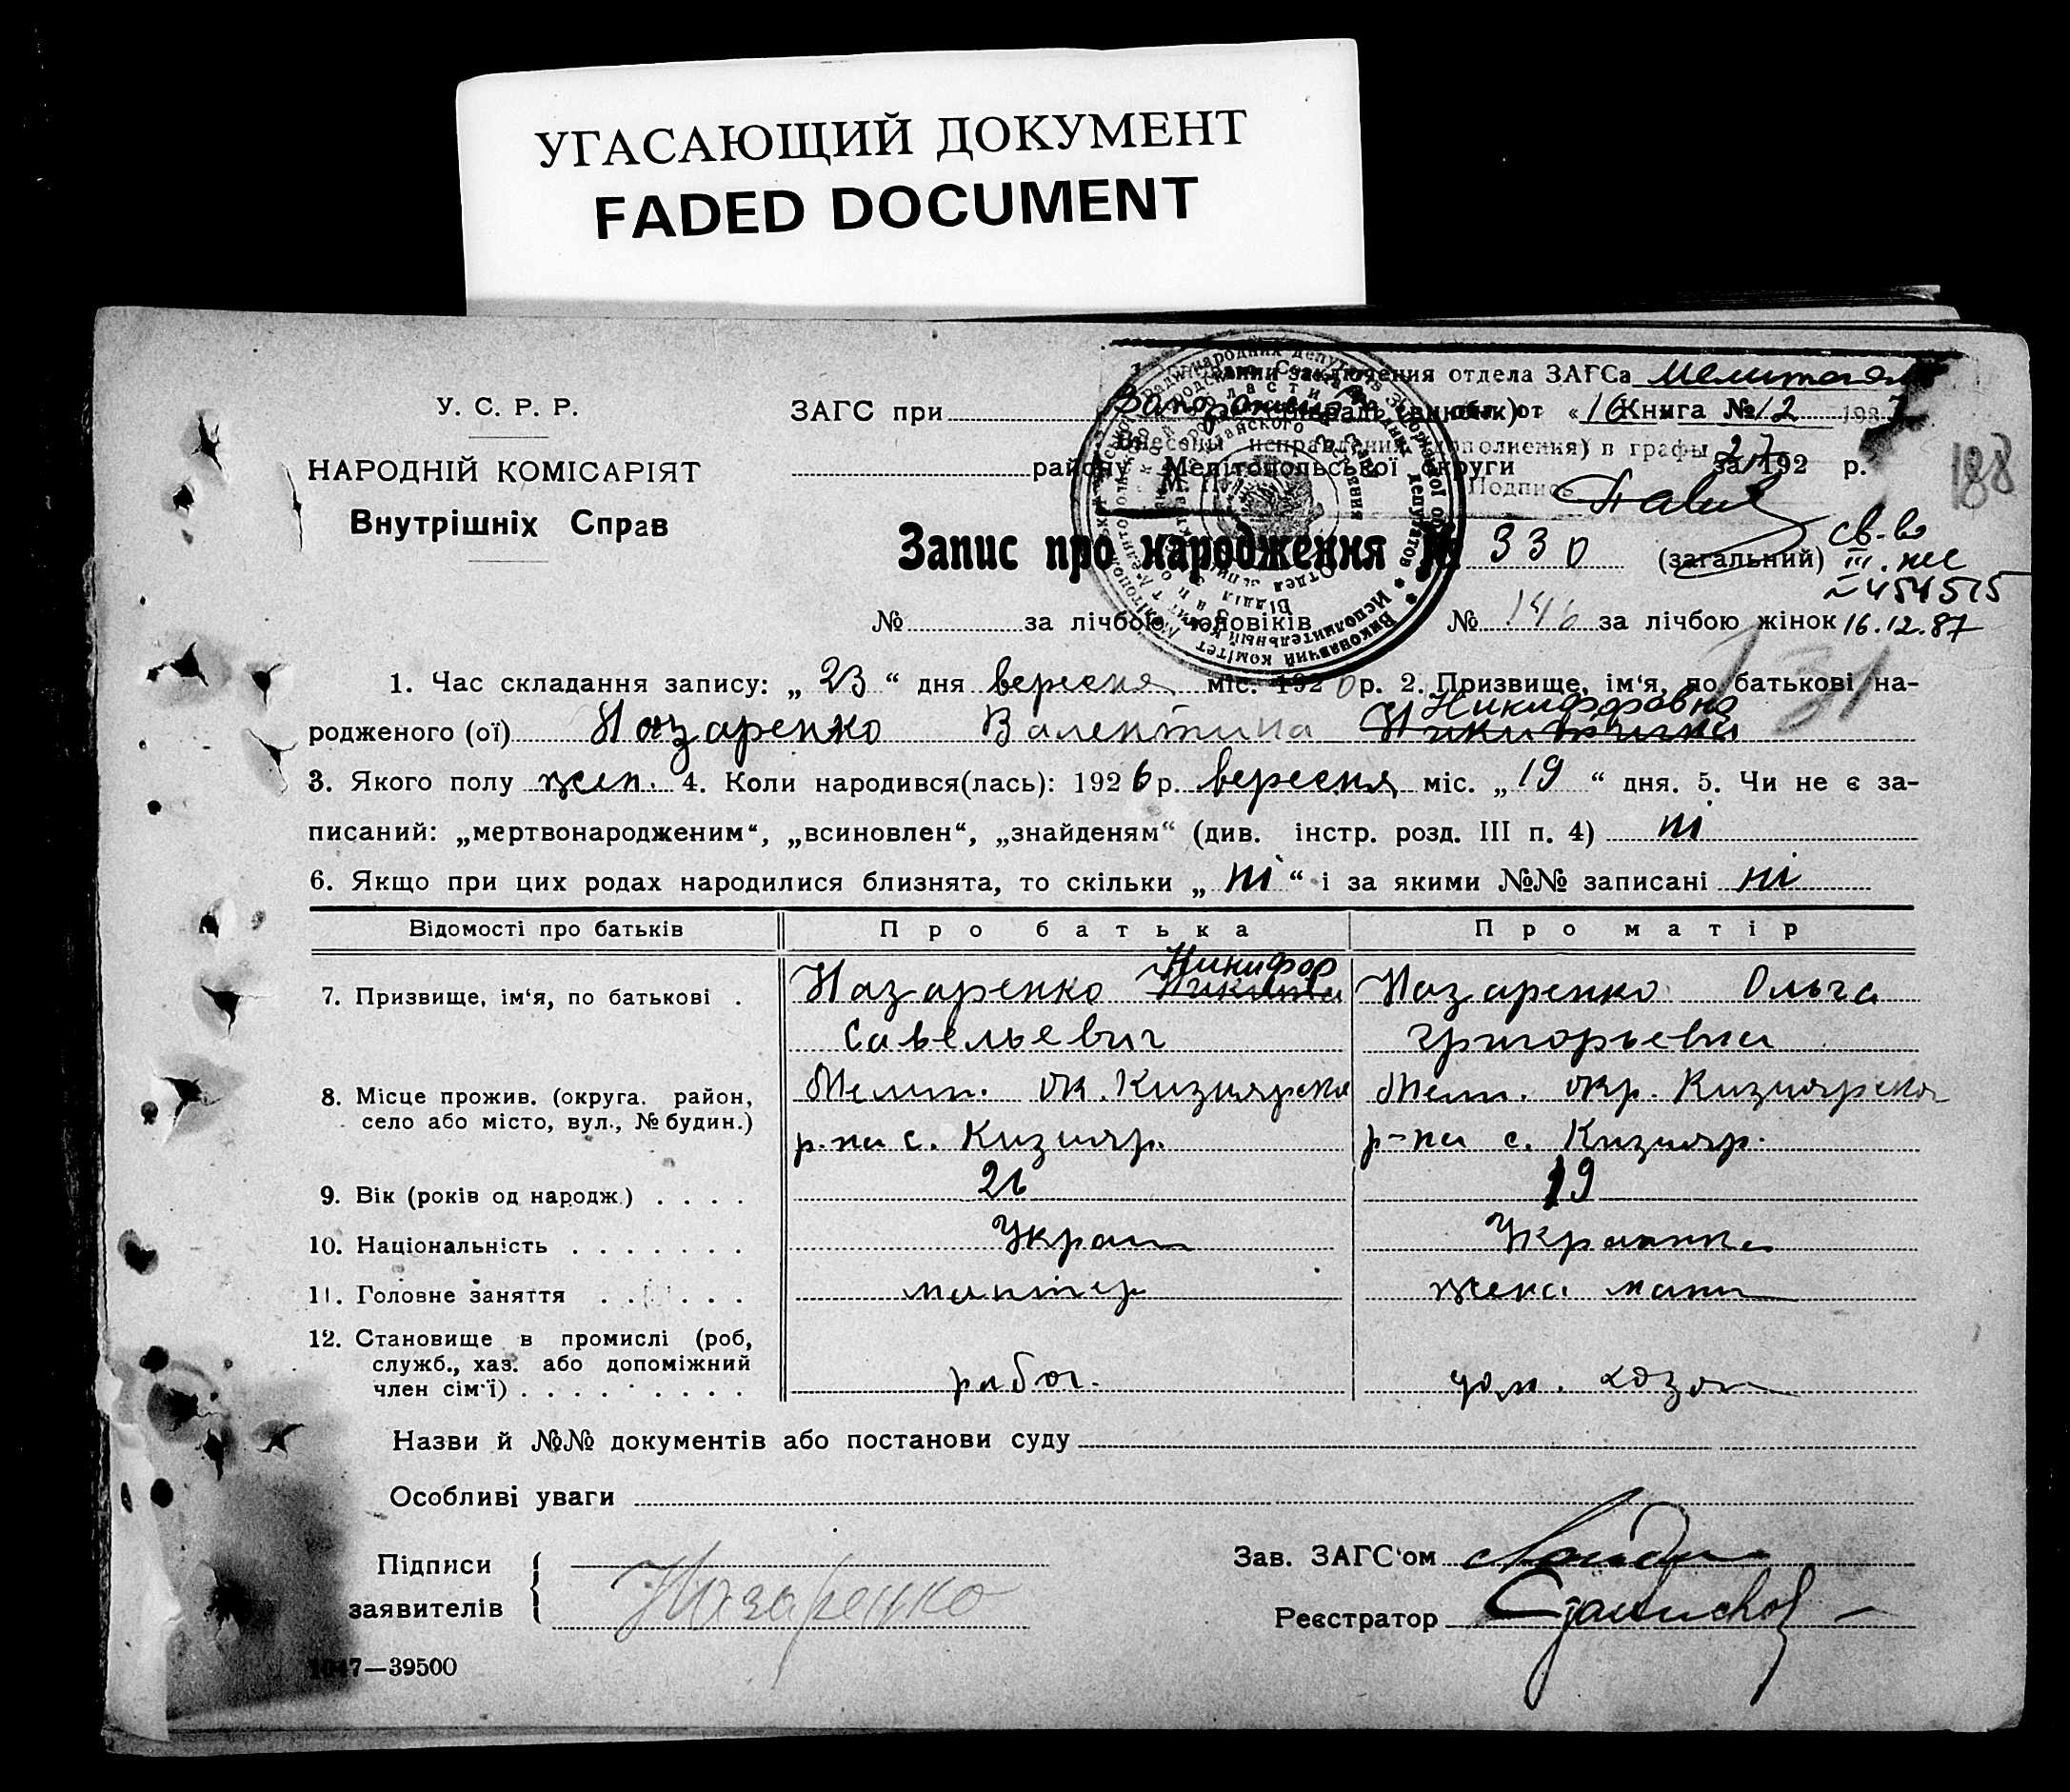 УГАСАЮЩИЙ ДОКУМЕНТ
FADED DOCUMENT
заключения отдела ЗАГСа
У. С. Р. Р.
ЗАГС при (виконк) от « 16 Книга № 12 198
исправления (дополнения) в графы 2, 7
НАРОДНІЙ КОМІСАРІЯТ
району Мелітопольської округи за 192 р.
188
М. П. Подпись
Внутрішніх Справ
Запис про народження № 330 (загальний)
св-во
III-жс
№ 454515
16.12.87
№ за лічбою чоловіків № 146 за лічбою жінок
131
1. Час складання запису: „ 23 “ дня вересня міс. 192 р. 2. Призвище, ім‘я, по батькові на-
Никифоровна
родженого (ої) Назаренко Валентина
3. Якого полу жен. 4. Коли народився(лась): 192 6 р. вересня міс. „ 19 “ дня. 5. Чи не є за-
писаний: „мертвонародженим“, „всиновлен“, „знайденям“ (див. інстр. розд. III п. 4) ні
6. Якщо при цих родах народилися близнята, то скільки „ ні “ і за якими №№ записані ні
Відомості про батьків Про батька Про матір
Никифор
7. Призвище, ім‘я, по батькові . Назаренко Никита Назаренко Ольга
Савельевич Григорьевна
8. Місце прожив. (округа. район, Мелит. ок. Кизиярска Мелит. окр. Кизиярска
село або місто, вул., № будин.) р-на с. Кизияр. р-на с. Кизияр.
9. Вік (років од народж.) . . . . 26 19
10. Національність . . . . . . . Украин Украинка
11. Головне заняття . . . . . .
12. Становище в промислі (роб,
служб., хаз. або допоміжний
член сім‘ї) . . . . . . . . . . рабоч. дом. хозяй
Назви й №№ документів або постанови суду
Особливі уваги
Підписи
заявителів Назаренко
Зав. ЗАГС‘ом
Реєстратор
1047—39500